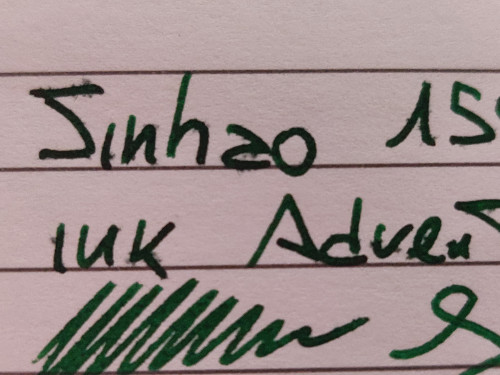 Jinhao 15
ink Adven